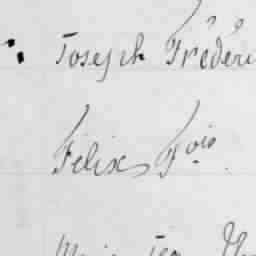 Joseph Fréderi
Félix Fois